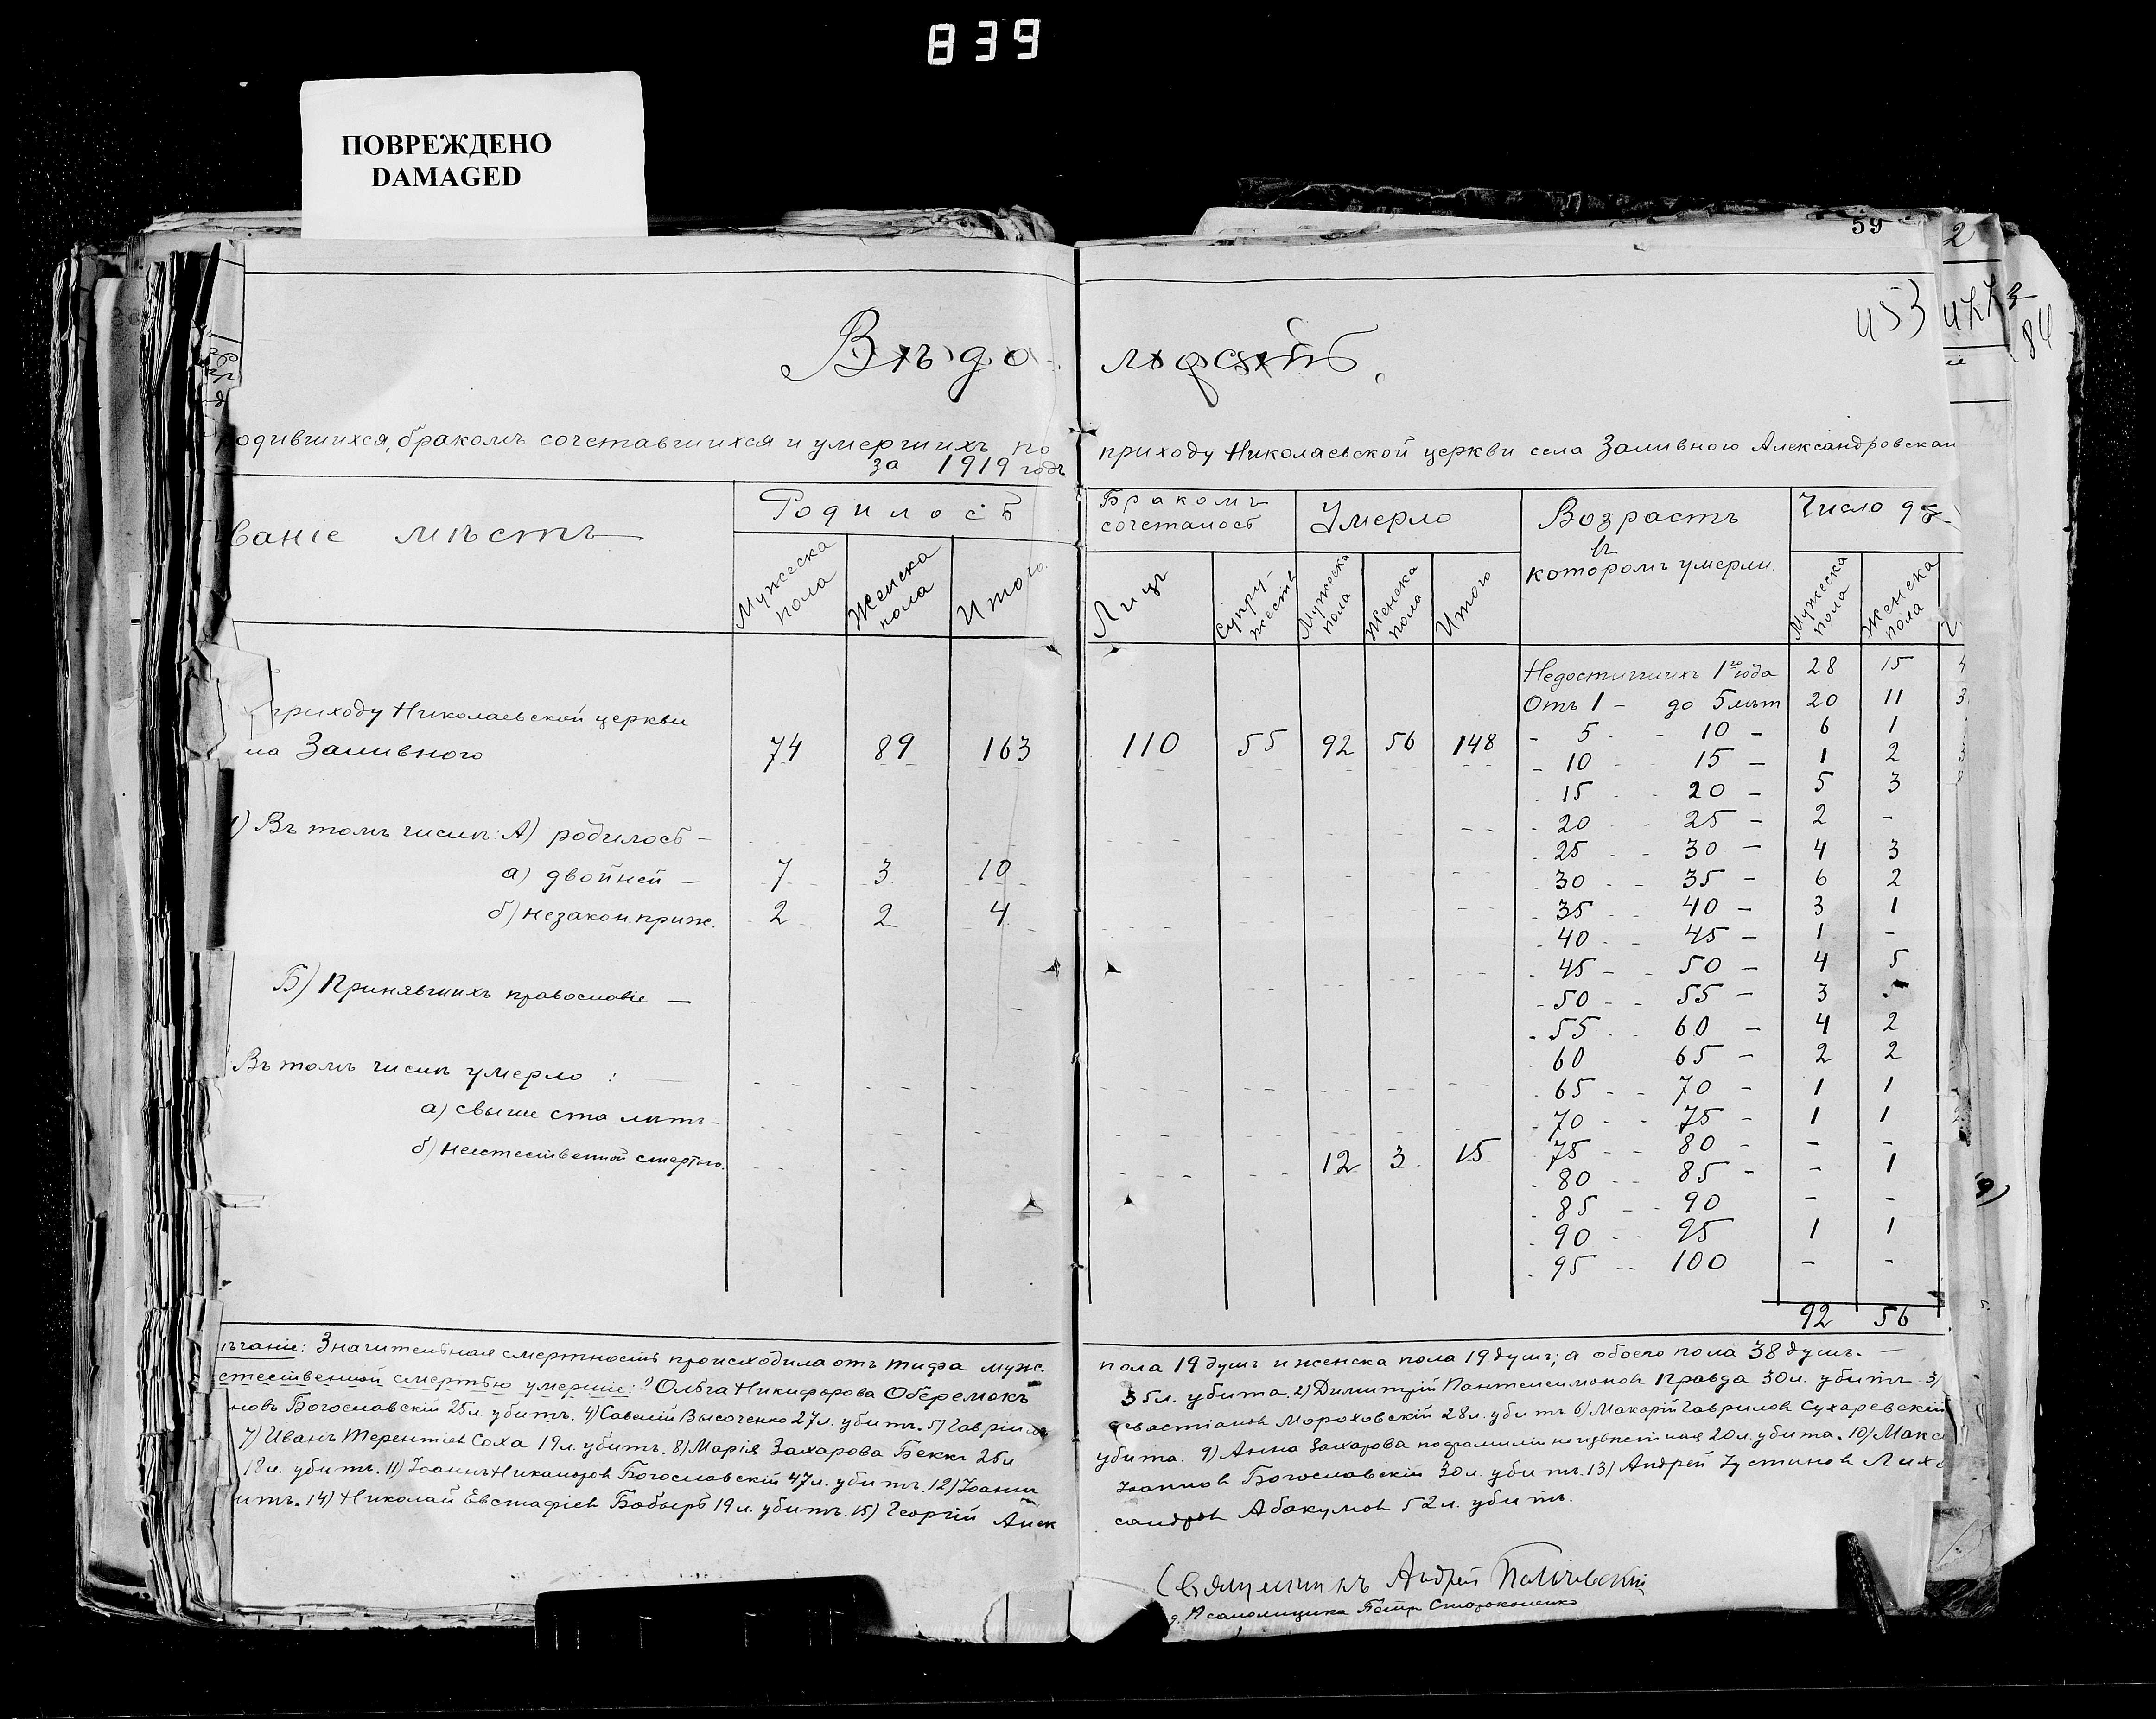 839
ПОВРЕЖДЕНО
DAMAGED
59
2
453
Вѣдо-
мость.
одившихся, бракомъ сочетавшихся и умершихъ по
приходу Николаевской церкви села Заливного Александровскаг
за 1919 годъ
ваніе мѣстъ
Родилось
Мужеска пола
Женска пола
Итого
Бракомъ сочеталось
Лицъ
Супружествъ
Умерло
Мужеска пола
Женска пола
Итого
Возрастъ въ которомъ умерли
Число
Мужеска пола
Женска пола
приходу Николаевской церкви
ла Заливного 74 89 163 110 55 92 56 148
1) Въ томъ числѣ: А) родилось –
а) двойней – 7 3 10
б) незакон. приж. 2 2 4
Б) Принявшихъ православіе –
Въ томъ числѣ умерло :
а) свыше ста лѣтъ –
б) неестественной смертью. 12 3 15
Недостигшихъ 1го года 28 15 4
Отъ 1 – до 5 лѣт 20 11 3
- 5 - 10 – 6 1
- 10 15 – 1 2
- 15 - 20 – 5 3
- 20 - 25 – 2 -
- 25 - 30 – 4 3
- 30 - 35 – 6 2
- 35 - 40 – 3 1
- 40 - 45 – 1 -
- 45 - 50 – 4 5
- 50 - 55 – 3
- 55 - 60 – 4 2
- 60 65 – 2 2
- 65 - 70 – 1 1
- 70 - 75 – 1 1
- 75 - 80 – - -
- 80 - 85 – - 1
- 85 - 90 - -
- 90 - 95 1 1
- 95 - 100 - -
92 56
ѣчаніе: Значительная смертность происходила отъ тифа муж.
пола 19 душъ и женска пола 19 душъ; а обоего пола 38 душъ. –
стественной смертью умершіе: 1) Ольга Никифорова Оберемокъ
35 л. убита. 2) Димитрій Пантелеимоновъ Правда 30 л. убитъ. 3)
новъ Богославскій 25 л. убитъ. 4) Савелій Высоченко 27 л. убитъ. 5) Гавріилъ
Севастіановъ Мороховскій 28 л. убитъ 6) Макарій Гавриловъ Сухаревскій
7) Иванъ Терентіевъ Соха 19 л. убитъ. 8) Марія Захарова Беккъ 25 л.
убита. 9) Анна Захарова по фамиліи неизвѣстная 20 л. убита. 10) Макс
18 л. убитъ. 11) Іоаннъ Никаноровъ Богославскій 47 л. убитъ. 12) Іоаннъ
Іоанновъ Богославскій 30 л. убитъ. 13) Андрей Іустиновъ Лихо
итъ. 14) Николай Евстафіевъ Бобырь 19 л. убитъ. 15) Георгій Алек
сандровъ Абакумовъ 52 л. убитъ.
Священникъ Андрей
д. Псаломщика Петръ Сторожненко